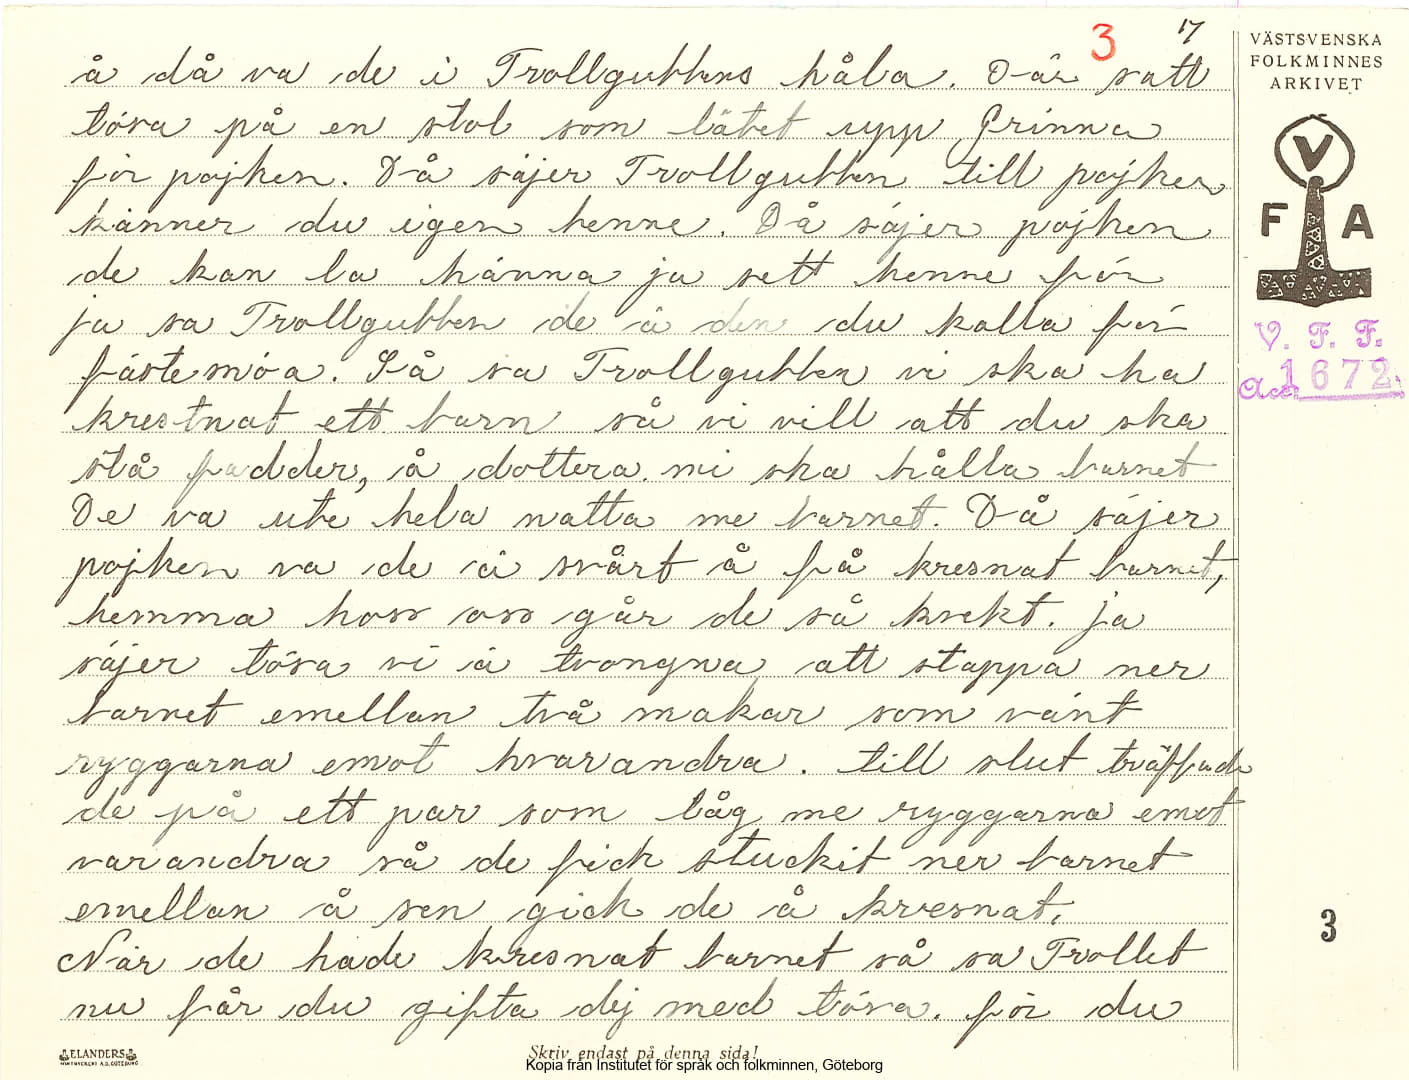 3 17
VÄSTSVENSKA
FOLKMINNES
ARKIVET
V
F A
V. F. F.
Acc. 1672.
å då va de i Trollgubbens håla. Där satt
tösa på en stol som låtet upp Grinna
för pojken. Då säjer Trollgubben till pojken
känner du igen henne. Då säjer pojken
de kan la hänna ja sett henne för
ja sa Trollgubben de ä den du kalla för
fästemöa. Så sa Trollgubben vi ska ha
krestnat ett barn så vi vill att du ska
stå fadder, å dottera mi ska hålla barnet
De va ute hela natta me barnet. Då säjer
pojken va de ä svårt å få kresnat barnet,
hemma hoss oss går de så kvekt. ja
säjer tösa vi ä tvongna att stappa ner
barnet emellan två makar som vänt
ryggarna emot hvarandra. till slut träffade
de på ett par som låg me ryggarna emot
varandra så de fick stuckit ner barnet
emellan å sen gick de å kresnat.
När de hade kresnat barnet så sa Trollet
nu får du gifta dej med tösa. för du
3
ELANDERS
Skriv endast på denna sida!
Kopia från Institutet för språk och folkminnen, Göteborg